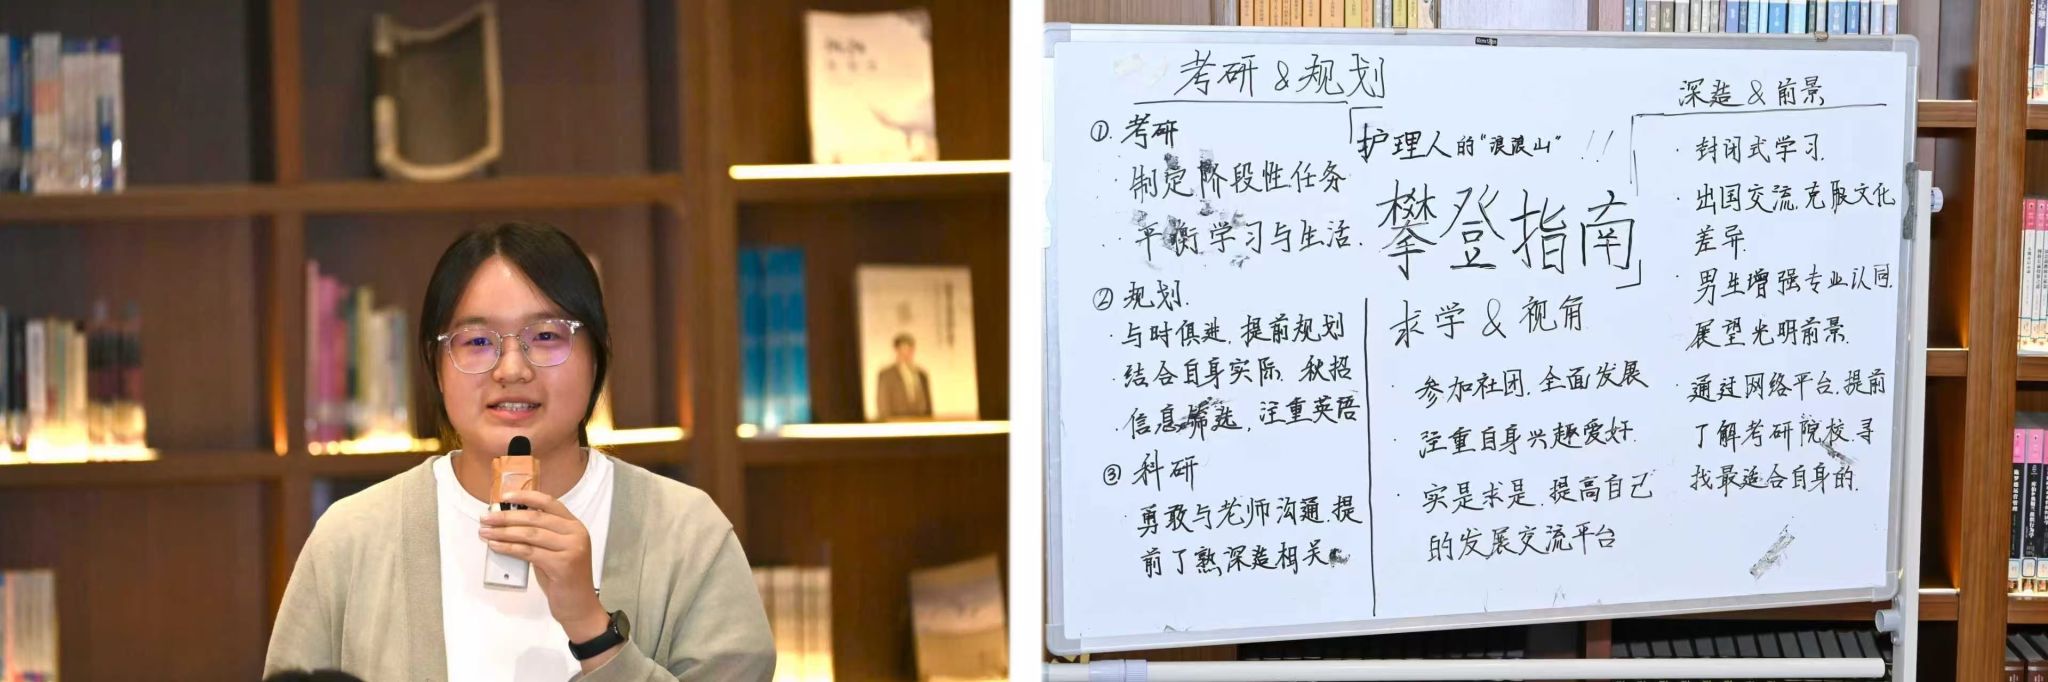 考研 & 规划
① 考研
· 制定阶段性任务
· 平衡学习与生活.
② 规划.
· 与时俱进,提前规划
· 结合自身实际 秋招
· 信息筛选,注重英语
③ 科研
· 勇敢与老师沟通,提
前了熟深造相关
护理人的"浪浪山"!!
攀登指南
求学 & 视角
· 参加社团,全面发展
· 注重自身兴趣爱好.
· 实是求是,提高自己
的发展交流平台
深造 & 前景
· 封闭式学习.
· 出国交流,克服文化
差异.
· 男生增强专业认同.
展望光明前景.
· 通过网络平台,提前
了解考研院校,寻
找最适合自身的.